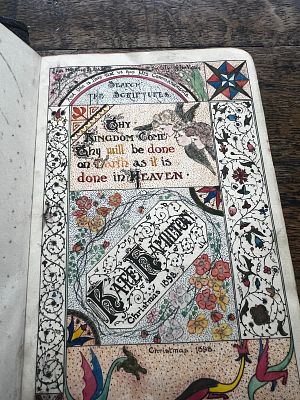 Search
The Scriptures
Thy
Kingdom Come
Thy will be done
on Earth as it is
done in Heaven.
Kate Hamilton
Christmas 1898.
Christmas 1898.